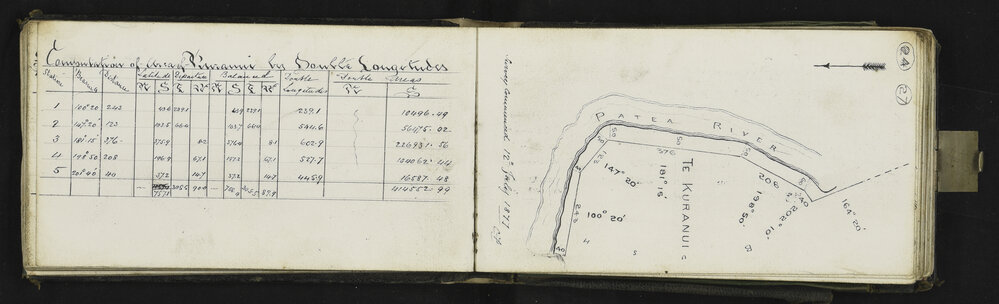 Computation of area Kuranui by Double Longitudes
Station Bearing Distance Latitude Departure Balanced Double Longitudes Double Areas
N S E W N S E W N S
1 100° 20' 243 43.6 239.1 43.9 239.1 239.1 10496.49
2 147° 20' 123 103.5 66.4 103.7 66.4 544.6 56475.02
3 181° 15' 376 375.9 8.2 376.4 8.1 602.9 226931.56
4 198° 50' 208 196.9 67.1 197.2 67.1 527.7 104062.44
5 201° 40' 40 37.2 14.7 37.2 14.7 445.9 16587.48
757.1 305.5 90.0 758.4 305.5 89.9 414552.99
Survey commenced 12th July 1871
24
27
PATEA RIVER
TE KURANUI
40
243
100° 20'
123
147° 20'
50
376
181° 15'
50
50
208
198° 50'
40
202° 10'
164° 20'